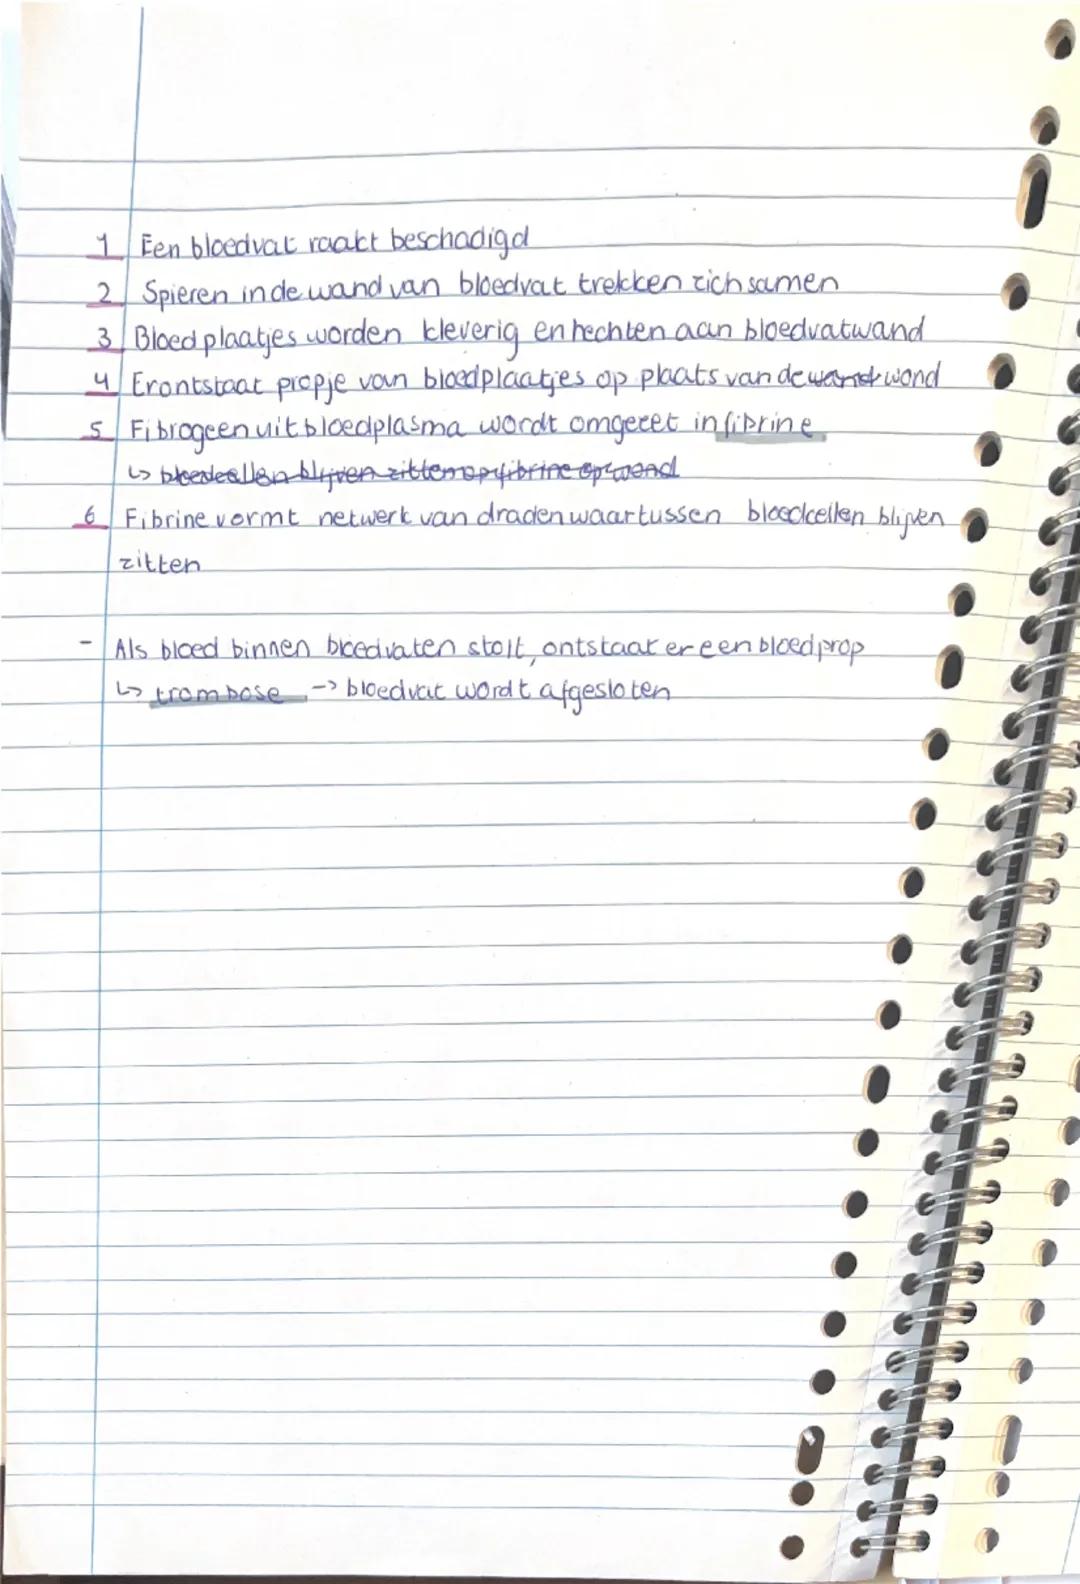 1 Een bloedvat raakt beschadigd
2 Spieren in de wand van bloedvat trekken zich samen
3 Bloedplaatjes worden kleverig en hechten aan bloedvatwand
4 Er ontstaat propje van bloedplaatjes op plaats van de wand wond
5 Fibrogeen uit bloedplasma wordt omgezet in fibrine
↳ bloedcellen blijven zitten op fibrine op wond
6 Fibrine vormt netwerk van draden waartussen bloedcellen blijven
zitten
- Als bloed binnen bloedvaten stolt, ontstaat er een bloedprop
↳ trombose -> bloedvat wordt afgesloten